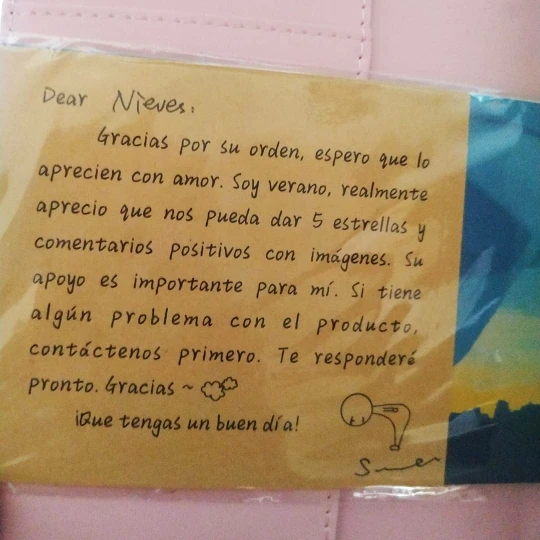 Dear Nieves:
Gracias por su orden, espero que lo
aprecien con amor. Soy verano, realmente
aprecio que nos pueda dar 5 estrellas y
comentarios positivos con imágenes. Su
apoyo es importante para mí. Si tiene
algún problema con el producto,
contáctenos primero. Te responderé
pronto. Gracias ~
¡Que tengas un buen día!